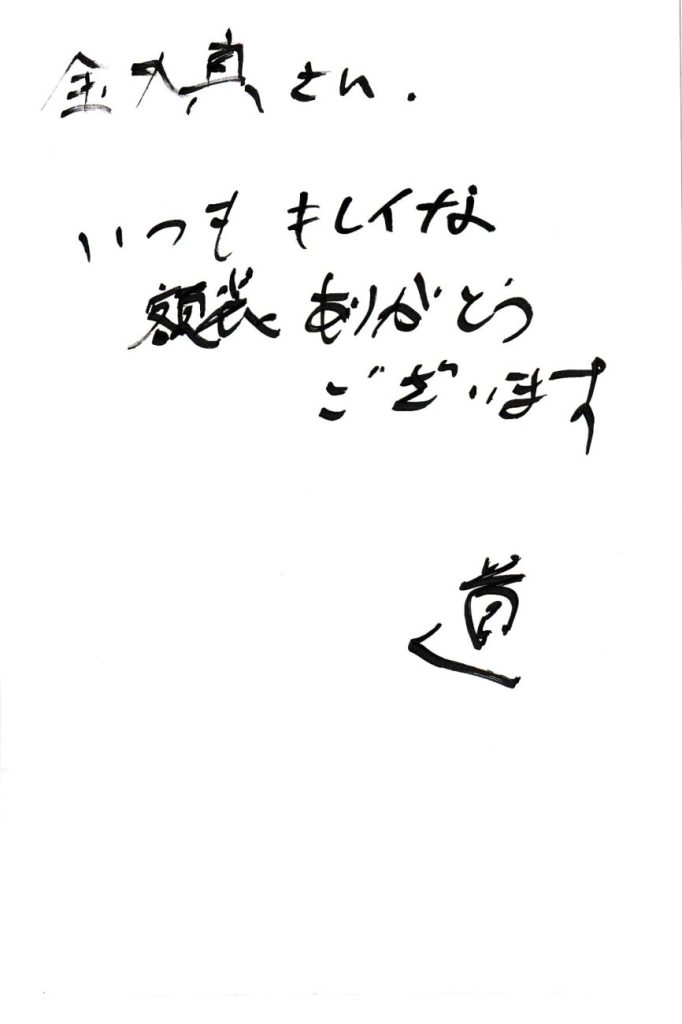 さん.
いつも キレイな
額装 ありがとう
ございます
道